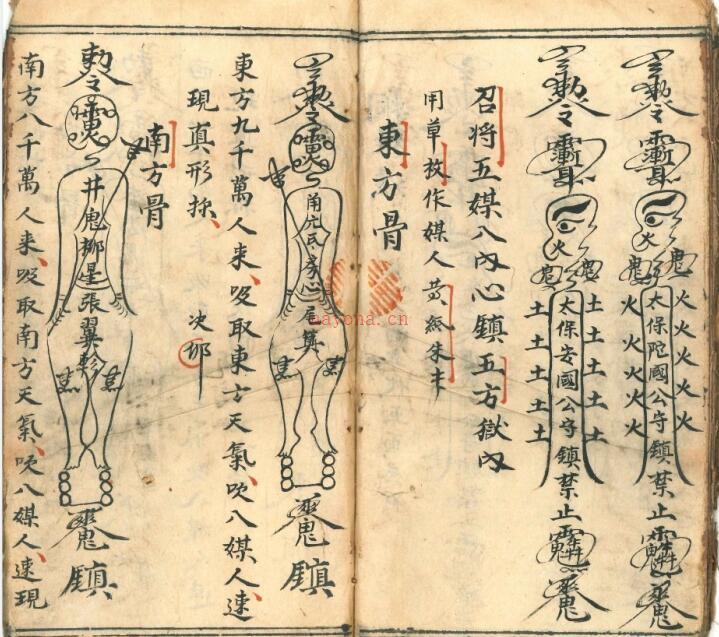 勅令
鬼
火火火火火
太保陀國公守鎮禁止
火火火火火
勅令
火
鬼
土土土土土
太保安國公守鎮禁止
土土土土土
召将五媒八內心鎮五方獄內
用草枚作媒人黄紙朱末
東方骨
勅令
角亢氐房心尾箕
鎮
東方九千萬人来吸取東方天氣吹八媒人速
現真形採 次
南方骨
勅令
井鬼柳星張翼軫
鎮
南方八千萬人来吸取南方天氣吹八媒人速現
nayona.cn